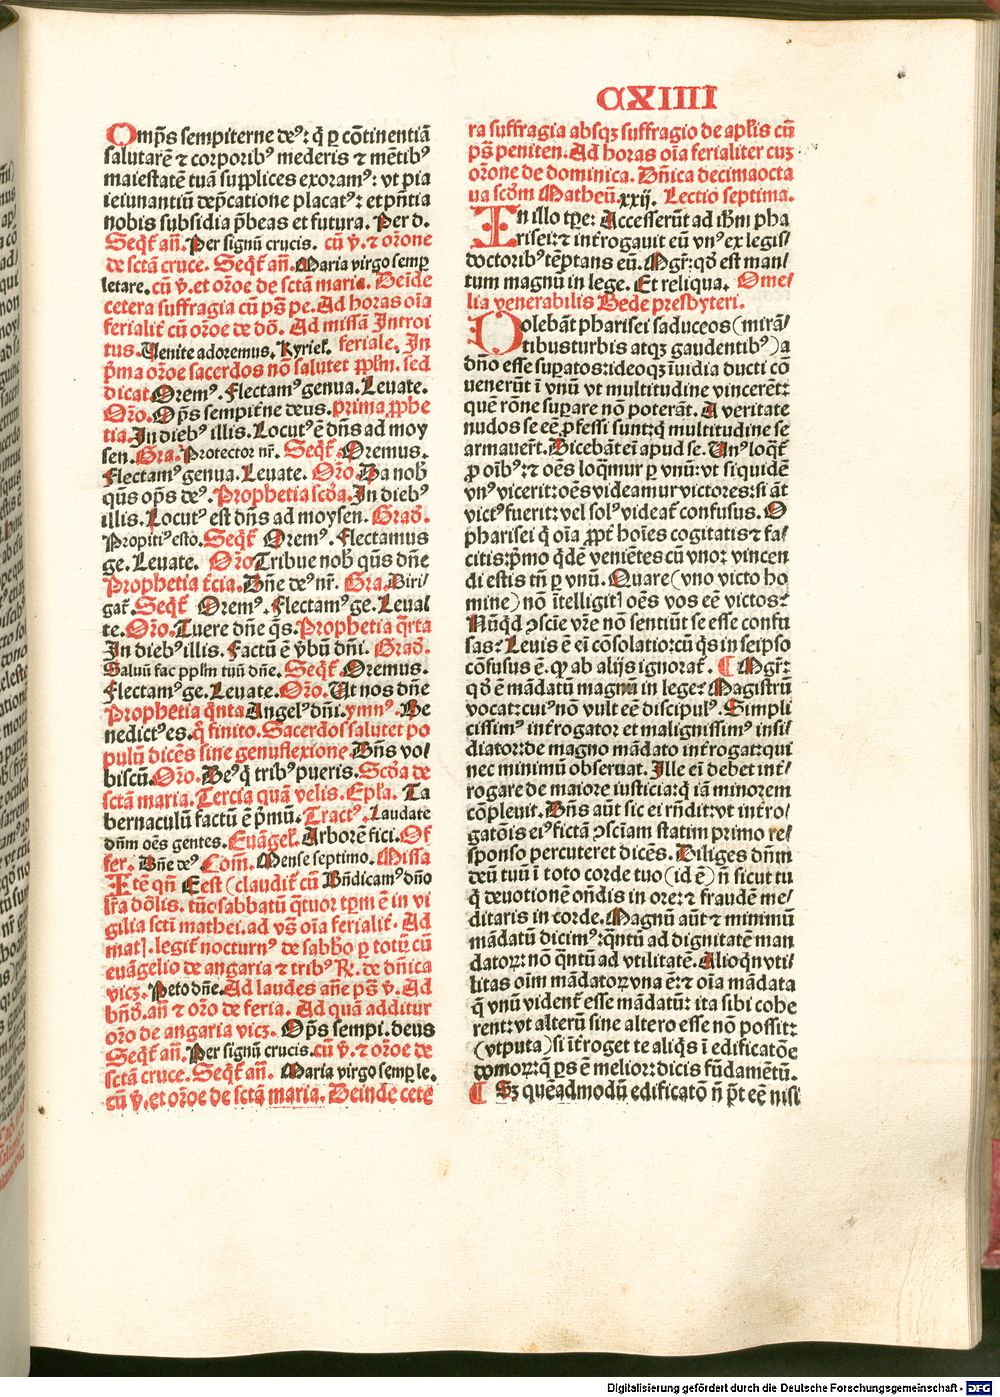 CXIIII
Omp̄s sempiterne deꝰ: q̄ ꝑ cōtinentiā
salutarē ⁊ corporibꝰ mederis ⁊ mētibꝰ
maiestatē tuā supplices exoramꝰ: vt pia
ieiunantiū dep̄catione placatꝰ: et pn̄tia
nobis subsidia p̄beas et futura. Per d.
Seqt̄ an̄. Per signū crucis. cū v̄. ⁊ or̄one
de sctā cruce. Seqt̄ an̄. Maria virgo semp̲
letare. cū v̄. et or̄oe de sctā maria. Deīde
cetera suffragia cū ps̄ pe. Ad horas oīa
ferialit̄ cū or̄oe de dō. Ad missā Introi
tus. Venite adoremus. Kyriel̄. feriale. In
p̄ma or̄oe sacerdos nō salutet ppl̄m. sed
dicat Oremꝰ. Flectamꝰ genua. Leuate.
Or̄o. Op̄s sempit̄ne deus. prima ꝓphe
tia. In diebꝰ illis. Locutꝰ ē dn̄s ad moy
sen. Gra. Protector nr̄. Seqt̄. Oremus.
Flectamꝰ genua. Leuate. Or̄o. Da nob̄
qūs op̄s deꝰ. Prophetia scd̄a. In diebꝰ
illis. Locutꝰ est dn̄s ad moysen. Grad̄.
Propitiꝰ esto. Seqt̄ Oremꝰ. Flectamus
ge. Leuate. Or̄o Tribue nob̄ qūs dn̄e
Prophetia t̄cia. Bn̄e deꝰ nr̄. Gra. Diri⸗
gat̄. Seqt̄ Oremꝰ. Flectamꝰ ge. Leua⸗
te. Or̄o. Tuere dn̄e q̄s. Prophetia q̄rta
In diebꝰ illis. Factū ē v̄bū dn̄i. Grad̄.
Saluū fac pplm̄ tuū dn̄e. Seqt̄ Oremus.
Flectamꝰ ge. Leuate. Or̄o. Ut nos dn̄e
Prophetia q̄nta Angelꝰ dn̄i. ymnꝰ. Be
nedictꝰ es. q̄ finito. Sacerdos salutet po
pulū dicēs sine genuflexione. Dn̄s vo⸗
biscū. Or̄o. Deꝰ q̄ tribꝰ pueris. Scd̄a de
sctā maria. Tercia quā velis. Epl̄a. Ta
bernaculū factū ē p̄mū. Tractꝰ. Laudate
dn̄m oēs gentes. Euāgel̄. Arborē fici. Of
fer. Bn̄e deꝰ Com̄. Mense septimo. Missa
Itē qn̄ Eest (claudit̄ cū Bn̄dicamꝰ dn̄o
lr̄a dōlis. tūc sabbatū q̄tuor tpm̄ ē in vi
gilia sctī mathei. ad vs̄ oīa ferialit̄. Ad
mat̄. legit̄ nocturnꝰ de sabbo ꝑ totū cū
euāgelio de angaria ⁊ tribꝰ ℟. de dn̄ica
vicꝫ. Peto dn̄e. Ad laudes an̄e ps̄ v̄. Ad
bn̄d̄. an̄ ⁊ or̄o de feria. Ad quā additur
or̄o de angaria vicꝫ. Op̄s sempi. deus
Seqt̄ an̄. Per signū crucis. cū v̄. ⁊ or̄oe de
sctā cruce. Seqt̄ an̄. Maria virgo semp̲ le.
cū v̄. et or̄oe de sctā maria. Deinde cete
ra suffragia absqꝫ suffragio de apl̄is cū
ps̄ peniten. Ad horas oīa ferialiter cuꝫ
or̄one de dominica. Dn̄ica decimaocta
ua scd̄m Matheū. xxij. Lectio septima.
In illo tpe: Accesserūt ad ihm̄ pha
risei: ⁊ int̄rogauit eū vnꝰ ex legis⸗
doctoribꝰ tēptans eū. Mgr̄: qd̄ est man⸗
tum magnū in lege. Et reliqua. Ome⸗
lia venerabilis Bede presbyteri.
Dolebāt pharisei saduceos (mirā⸗
tibusturbis atqꝫ gaudentibꝰ) a
dn̄o esse suꝑatos: ideoqꝫ īuidia ducti cō
uenerūt ī vnū vt multitudine vincerēt:
quē rōne suꝑare nō poterāt. A veritate
nudos se eē ꝓfessi sunt: q̄ multitudine se
armauer̄t. Dicebāt ei apud se. Unꝰ loq̄t̄
ꝓ oībꝰ: ⁊ oēs loq̄mur ꝑ vnū: vt siquidē
vnꝰ vicerit: oēs videamur victores: si āt
victꝰ fuerit: vel solꝰ videat̄ confusus. O
pharisei q̄ oīa ꝓpt̄ hoīes cogitatis ⁊ fa⸗
citis: p̄mo q̄dē veniētes cū vno: vincen
di estis tm̄ ꝑ vnū. Quare (vno victo ho
mine) nō ītelligit̄ oēs vos eē victos:
Nūqd̄ ↄscīe vr̄e nō sentiūt se esse confu
sas: Leuis ē ei cōsolatio: cū q̄s in seipso
cōfusus ē. ꝙ ab alijs ignorat̄. ¶ Mgr̄:
qd̄ ē mādatū magnū in lege: Magistrū
vocat: cuiꝰ nō vult eē discipulꝰ. Simpli
cissimꝰ int̄rogator et malignissimꝰ insi⸗
diator: de magno mādato int̄rogat: qui
nec minimū obseruat. Ille ei debet int̄⸗
rogare de maiore iusticia: q̄ iā minorem
cōpleuit. Dn̄s aūt sic ei rn̄dit: vt int̄ro⸗
gatōis eiꝰ fictā ↄscīam statim primo re⸗
sponso percuteret dicēs. Diliges dn̄m
deū tuū ī toto corde tuo (id ē) n̄ sicut tu
q̄ deuotionē ondis in ore: ⁊ fraudē me⸗
ditaris in corde. Magnū aūt ⁊ minimū
mādatū dicimꝰ: q̄ntū ad dignitatē man
datoꝝ: nō q̄ntū ad vtilitatē. Alioqn̄ vti⸗
litas oīm mādatoꝝ vna ē: ⁊ oīa mādata
q̄ vnū vident̄ esse mādatū: ita sibi cohe
rent: vt alterū sine altero esse nō possit:
(vtputa) si īt̄roget te aliq̄s ī edificatōe
domoꝝ: q̄ ps̄ ē melior: dicis fūdamētū.
¶ Sꝫ quēadmodū edificatō n̄ pt̄ eē nisi
Digitalisierung gefördert durch die Deutsche Forschungsgemeinschaft - DFG